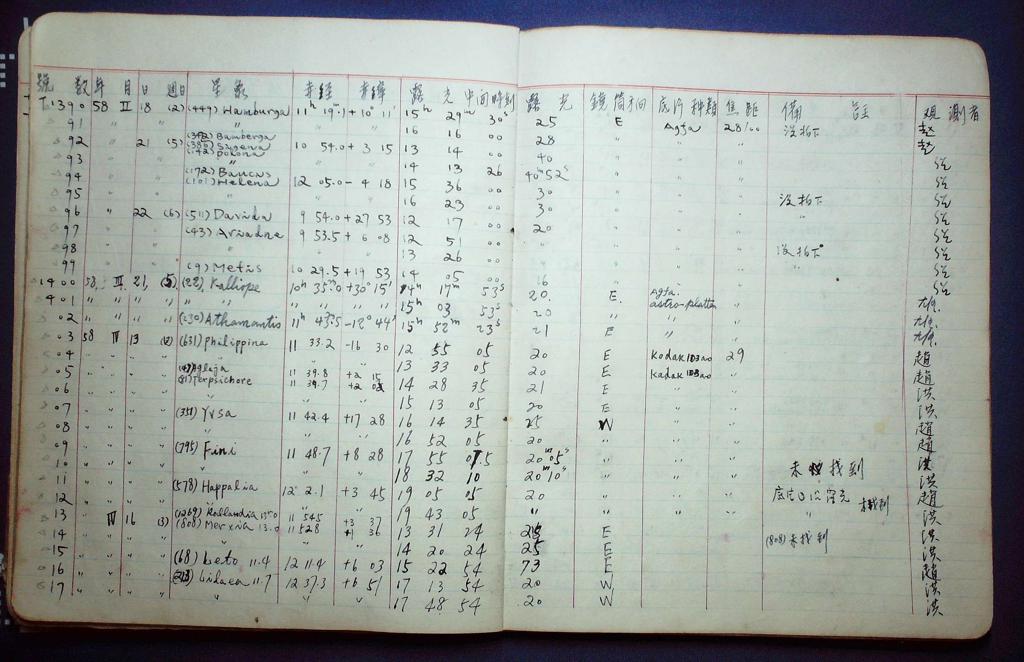 號數 年 月 日 週日 星象 赤經 赤緯 露光中間時刻 露光 鏡筒方向 底片種類 焦距 備註 观測者
T.1390 58 II 18 (2) (449) Hamburga 11h 19.1m +10° 11' 15h 29m 30s 25 E Agfa 没拍下 赵
91 " " 16 16 00 28 " " " 赵
92 " 21 (5) Bamberga 10 54.0 +3 15 13 14 00 40 " "
93 " 14 13 26 40m 52s " "
94 (172) Baucis (101) Helena 12 05.0 -4 18 15 36 00 30 " " 没拍下
95 " 16 23 00 30 " " "
96 " 22 (6) (511) Davida 9 54.0 +27 53 12 17 00 20 " "
97 (43) Ariadne 9 53.5 +6 08 12 51 00 " " 没拍下
98 " 13 26 00 " " "
99 (9) Metis 10 29.5 +19 53 14 05 00 16 " "
1400 58 III 21 (5) (22) Kalliope 10h 35m.0 +30° 15' 14h 17m 53s 20 E Agfa astro-platten
401 " " " " " " " 15h 03 53s 20 " "
02 " " " (230) Athamantis 11h 43.5 -12° 44' 15h 52m 23s 21 E "
03 58 IV 13 (631) Philippina 11 33.2 -16 30 12 55 05 20 E Kodak 103ao 29 趙
04 " " " " 13 33 05 20 E Kodak 103ao " 趙
05 " " " (47) Aglaja 11 39.8 +2 15 (81) Terpsichore 11 39.7 14 28 35 21 E " " 洪
06 " " " " 15 13 05 20 E " " 洪
07 " " " (351) Yrsa 11 42.4 +17 28 16 14 35 25 W " " 趙
08 " " " " 16 52 05 20 " " " 趙
09 " " " (795) Fini 11 48.7 +8 28 17 55 07.5 20m 05s " " " 洪
10 " " " " 18 32 10 20m 10s " " " 未找到 洪
11 " " " (578) Happelia 12 2.1 +3 45 19 05 05 20 " " " 趙
12 " " " " 19 43 05 " " " " " 未找到 洪
13 " IV 16 (3) (1269) Rollandia 13.0 11 54.5 +3 37 (808) Merxia 13.0 11 52.8 +1 36 13 31 24 25 E " " (808) 未找到 洪
14 " " " " 14 20 24 25 E " " 洪
15 " " " (68) Leto 11.4 12 11.4 +6 03 15 22 54 73 E " " 趙
16 " " " 11.7 12 37.3 +6 51 17 13 54 20 W " " 洪
17 " " " " 17 48 54 20 W " " 洪